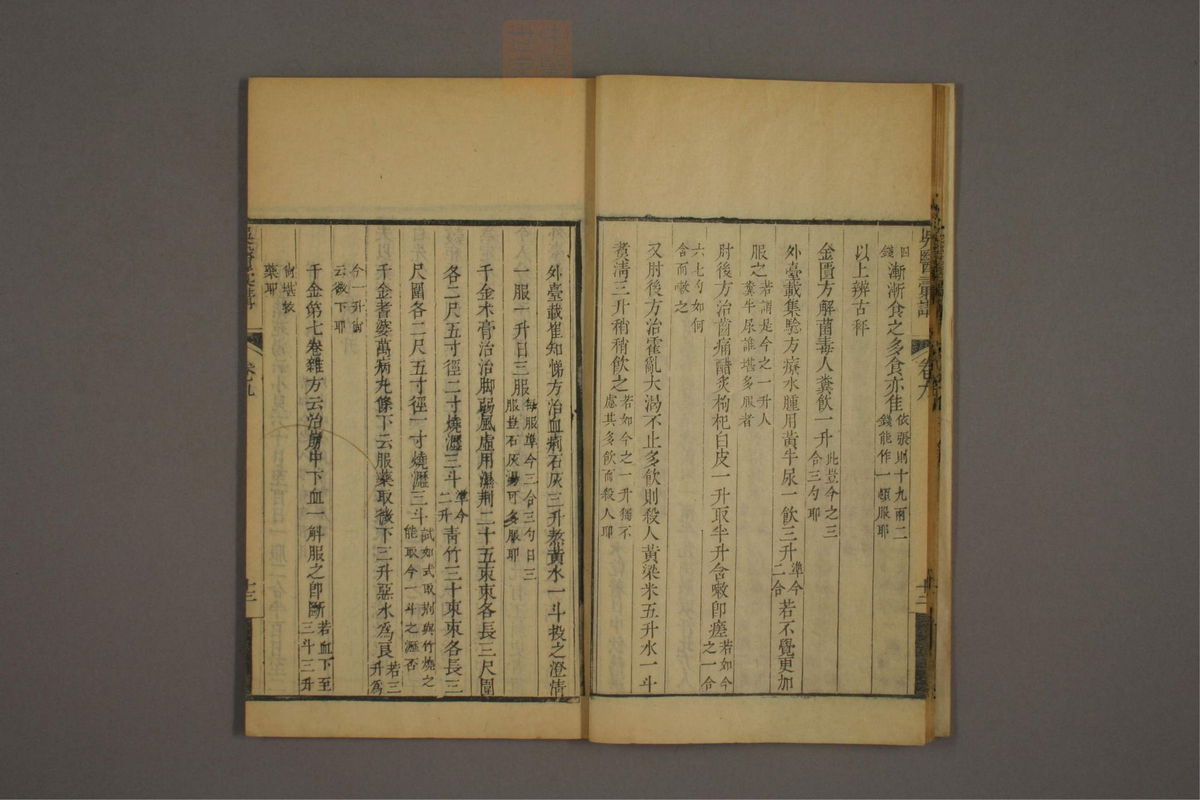 四錢漸漸食之多食亦佳依張則十九兩二錢能作一頓服耶
以上辨古秤
金匱方解菌毒人糞飲一升此豈今之三合三勺耶
外臺載集驗方療水腫用黃牛尿一飲三升準今二合若不覺更加
服之若謂是今之一升人糞牛尿誰堪多服者
肘後方治齒痛醋炙枸杞白皮一升取半升含嗽即瘥若如今之一合
六七勺如何含而嗽之
又肘後方治霍亂大渴不止多飲則殺人黃梁米五升水一斗
煮清三升稍稍飲之若如今之一升獨不慮其多飲而殺人耶
吳醫彙講
卷九
十二
外臺載崔知悌方治血痢石灰三升熬黃水一斗投之澄清
一服一升日三服每服準今三合三勺日三服豈石灰湯可多服耶
千金术膏治治脚弱風虛用濕荆二十五束束各長三尺圍
各二尺五寸徑二寸燒瀝三斗準今二升青竹三十束束各長三
尺圍各二尺五寸徑一寸燒瀝三斗試如式取荆與竹燒之能取今一斗之瀝否
千金耆婆萬病丸條下云服藥取微下三升惡水爲良若三升爲
今一升當云微下耶
千金第七卷雜方云治崩中下血一斛服之即斷若血下至三斗三升
尚堪救藥耶
卷九
十三